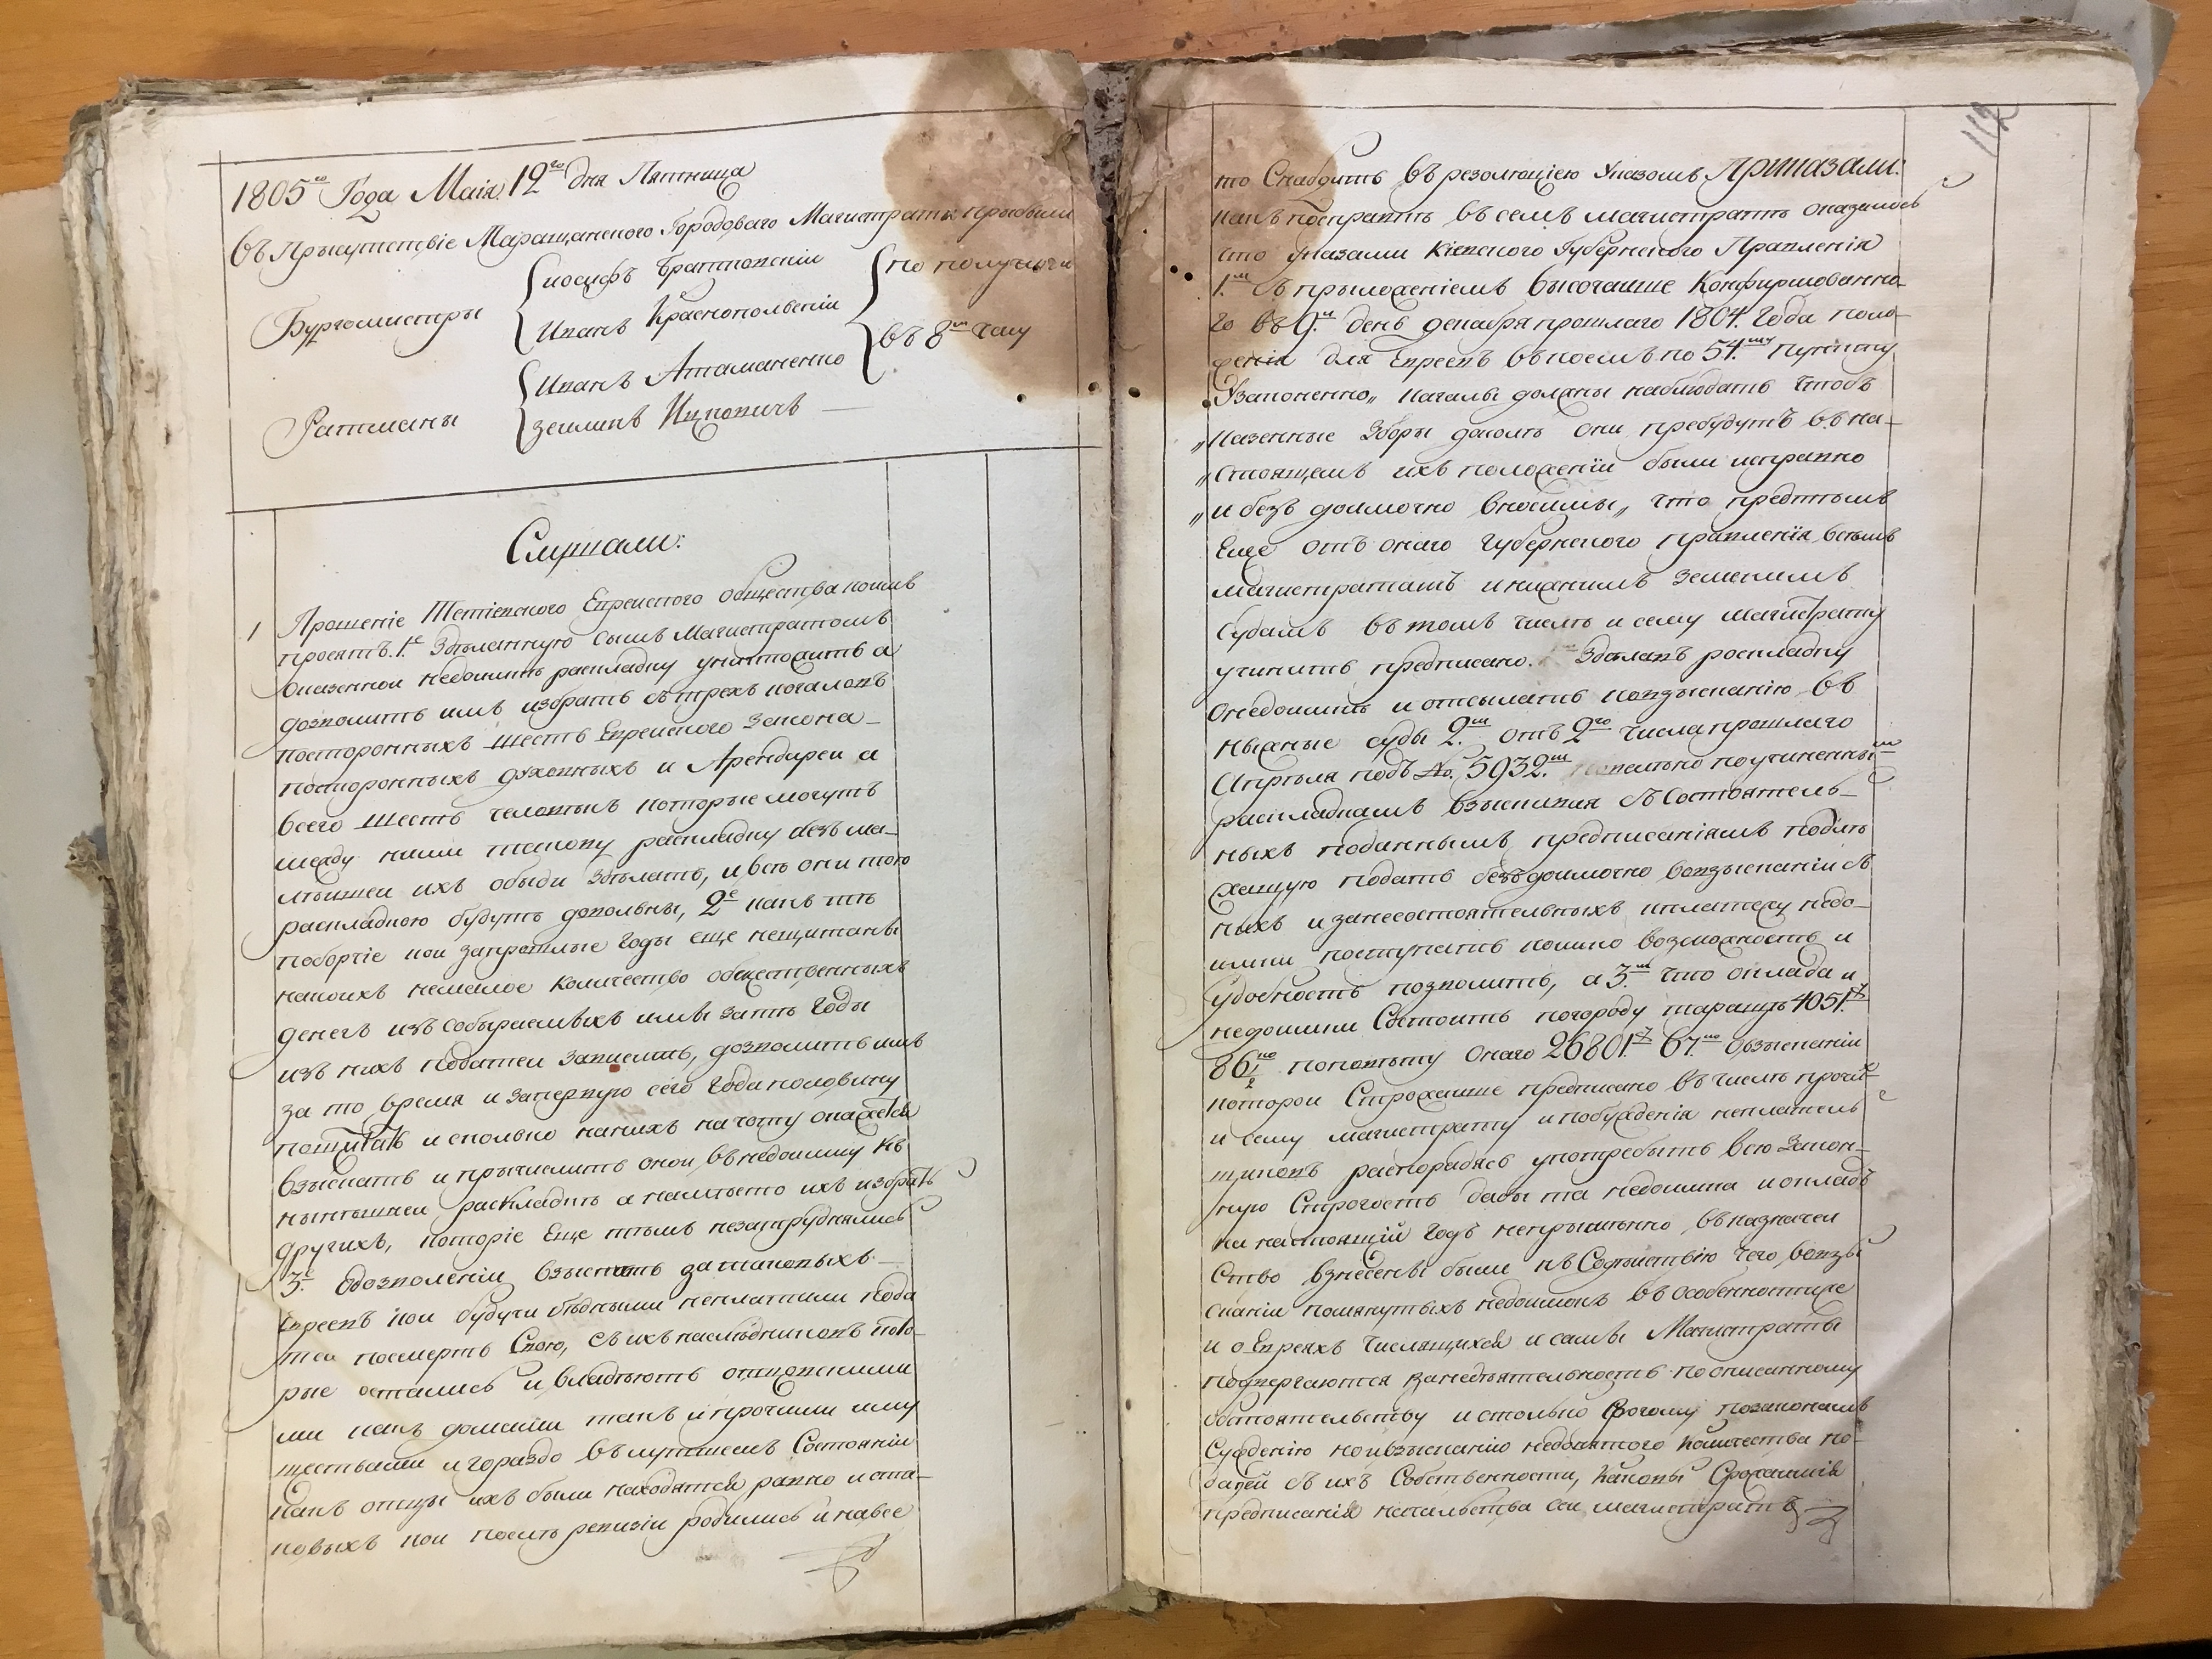 1805го Года Маія 12го дня Пятница
въ Прысутствіе Таращанского Городоваго Магистрата прибыли
Бургомистры
Иосифъ Братковскіи
Иванъ Краснопольскіи
по полуночи
въ 8м часу
Ратманы
Иванъ Атаманенко
Зеликъ Ицковичъ
Слушали:
1 Прошеніе Тетіевского Евреиского общества коимъ
просятъ 1е Здѣланную симъ Магистратомъ
оказенной недоимкѣ раскладку уничтожить а
дозволить имъ избрать съ трехъ кагаловъ
посторонныхъ шесть Евреиского Закона
посторонныхъ духовныхъ и Арендареи а
всего шесть человѣкъ которые могутъ
между ними таковую раскладку безъ ма-
лѣишеи ихъ обыди Здѣлать, и всѣ они тою
раскладкою будутъ довольны, 2е какъ тѣ
поборчіе кои запрошлые годы еще нещитаны
накоихъ немалое количество общественныхъ
денегъ изъ собыраемыхъ имы затѣ годы
изъ нихъ податеи зависить, дозволить имъ
за то время и заперпую сего года половину
пощитать и сколько накихъ начоту окажется
взыскать и прычислить оной въ недоимку къ
нынѣшнеи раскладкѣ а намѣсто ихъ избрать
другихъ, которіе Еще тѣмъ незатруднялись
3е Одозволеніи взыскать за таковыхъ
Евреевъ кои будучи бѣдными неплатили пода
теи посмертѣ Своей, съ ихъ наслѣдниковъ кото-
рые остались и владѣютъ отцовскими
ми какъ домами такъ и прочими иму
ществами и гораздо въ лутшемъ Состояніи
какъ отцы ихъ были находятся равно и ста-
новыхъ кои послѣ ревизіи родились и навсе
112
то Снабдить въ резолюцію Указомъ Приказали:
какъ посправкѣ въ семъ магистратѣ оказалось
сто указами Кіевского Губернского Правленія
1м съ прыложеніемъ высочаише Конфирмованно-
го въ 9й день декабря прошлаго 1804 Года поло-
женія для Евреевъ въ коемъ по 54му Пункту
Узаконенно,, Кагалы должны наблюдать чтобъ
„казенные Зборы доколѣ они пребудутъ въ на-
„стоящемъ ихъ положеніи были исправно
„и безъ доимочно вносимы„ что предтѣмъ
Еще отъ онаго Губернского правленія всѣмъ
магистратамъ и нижнимъ земскимъ
Судамъ въ томъ числѣ и сему магистрату
учинить предписано. Здѣлавъ роскладку
онедоимкѣ и отсылать ковзысканію въ
ныжные суды 2м отъ 2го числа прошлаго
Апрѣля подъ No. 5932м поучиненным
раскладкамъ взыскивая съ Состоятель-
ныхъ поданнымъ предписаніямъ подле
жащую подать безъ доимочно
ныхъ и занесостоятельныхъ кплатежу недо-
имки поступать коимо возможность и
удобность позволитъ, а 3м что оклада и
недоимки Состоитъ погороду таращѣ 4051
86 1/2 поповѣту Онаго 26801 67 овзысканіи
которои Строжаише предписано въ числѣ прочих
и сему магистрату и побужденія неплатель
щиковъ распорядясь употребить всю Закон-
ную Строгость дабы та недоимка и окладъ
на настоящій Годъ непрымѣнно въ казначеи
Ство взнесены были къ Содѣиствію чего
сканіи помянутыхъ недоимокъ въ особенности же
и о Евреяхъ числящихся и самы Магистраты
подвергаются занедѣятельность по описанному
обстоятельству и столько строгому позаконамъ
Сужденію но и взысканію недонятого Количества по-
датей съ ихъ Собственности, Каковы Строжаишія
предписанія начальства сеи магистратъ